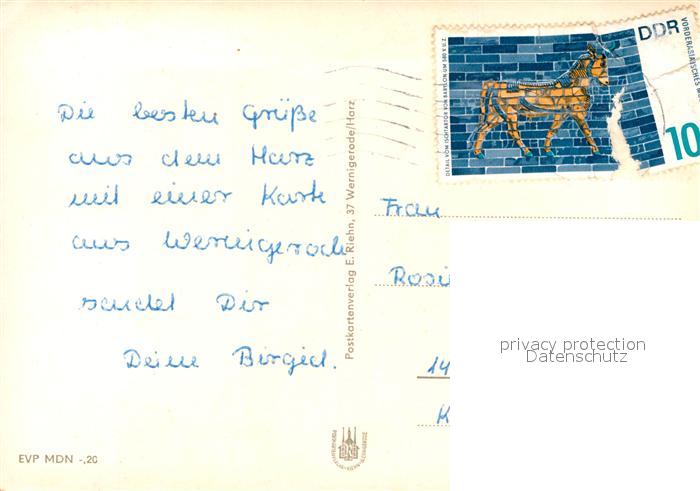 Die besten Grüße
aus dem Harz
mit einer Karte
aus Wernigerode
sendet Dir
Deine Birgid.
EVP MDN -,20
Postkartenverlag E. Riehn, 37 Wernigerode/Harz
DETAIL VOM ISCHTARTOR VON BABYLON UM 580 V. U. Z.
DDR
VORDERASIATISCHES
10
Frau
Rosi
14
K
privacy protection
Datenschutz